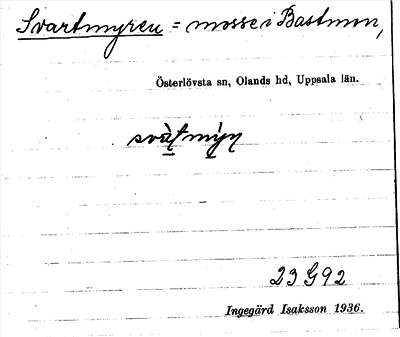 Svartmyren = mosse i Bastmon,
Österlövsta sn, Olands hd, Uppsala län.
svàṭmỵ̀n
23 G92
Ingegärd Isaksson 1936.